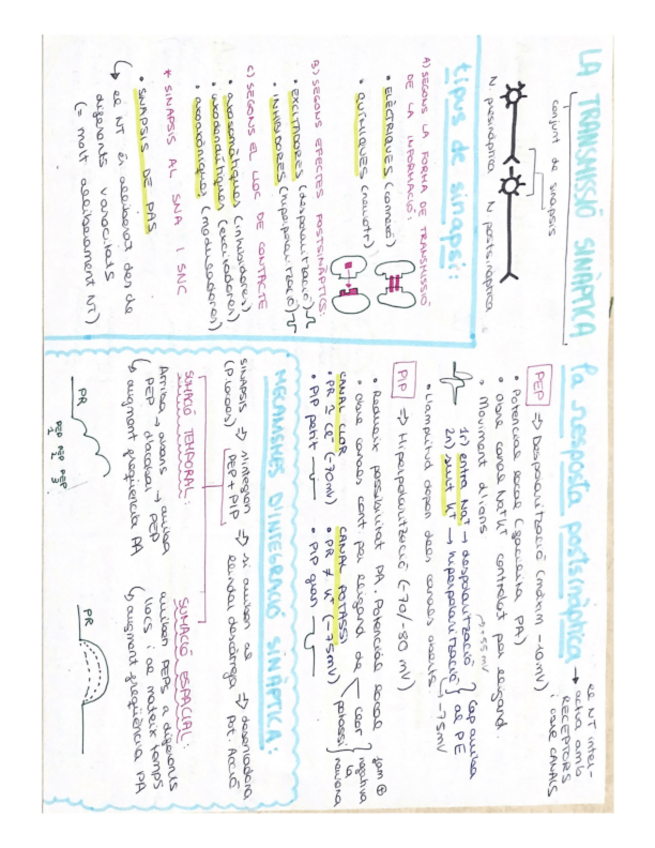 LA TRANSMISSIÓ SINÀPTICA
conjunt de sinapsis
N. presinàptica N postsinàptica
tipus de sinapsi:
A) SEGONS LA FORMA DE TRANSMISSIÓ
DE LA INFORMACIÓ:
• ELÈCTRIQUES (connexó)
• QUÍMIQUES (neurotr)
B) SEGONS EFECTES POSTSINÀPTICS:
• EXCITADORES (despolarització)
• INHIBIDORES (hiperpolarització)
C) SEGONS EL LLOC DE CONTACTE
• axosomàtiques (inhibidores)
• axodendrítiques (excitadores)
• axoaxòniques (moduladores)
* SINAPSIS AL SNA I SNC
• SINAPSIS DE PAS
↳ el NT és alliberat des de
diferents varicositats
(= molt alliberament NT)
la resposta postsinàptica → el NT inter-
actua amb
RECEPTORS
i obre CANALS
PEP ⇒ Despolarització (màxim -10mV)
• Potencial local (facilita PA)
• obre canal Na+ K+ controlat per lligand.
• Moviment d'ions
→ +55 mV
1r) entra Na+ → despolarització
2n) surt K+ → hiperpolarització
Cap amunt
al PE
-75mV
• L'amplitud depèn dels canals oberts.
PIP ⇒ Hiperpolarització (-70/-80 mV)
• Redueix possibilitat PA. Potencial local
• obre canals cont per lligand de
clor
potassi
negativa
neurona
CANAL CLOR
• PR ≅ Cl- (-70mV)
• PIP petit
CANAL POTASSI
• PR ≠ K+ (-75mV)
• PIP gran
MECANISMES D'INTEGRACIÓ SINÀPTICA:
SINAPSIS ⇒ s'integren ⇒ si arriben al ⇒ desencadena
(P. locals) PEP + PIP llindar descàrrega Pot. Acció
SUMACIÓ TEMPORAL:
Arriba → abans → arriba
PEP d'acabar PEP
↳ augment freqüència PA
PR
PEP PEP PEP
1 2 3
SUMACIÓ ESPACIAL:
arriben PEPS a diferents
llocs i al mateix temps
↳ augment freqüència PA
PR